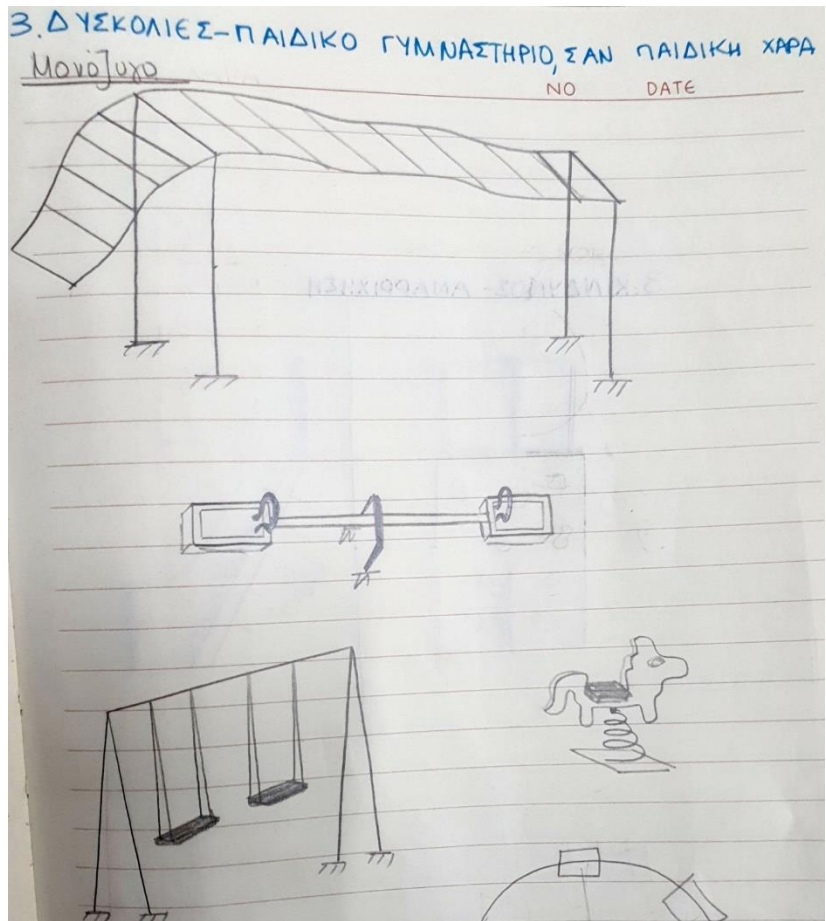 3. ΔΥΣΚΟΛΙΕΣ-ΠΑΙΔΙΚΟ ΓΥΜΝΑΣΤΗΡΙΟ, ΣΑΝ ΠΑΙΔΙΚΗ ΧΑΡΑ
Μονόζυγο
NO DATE